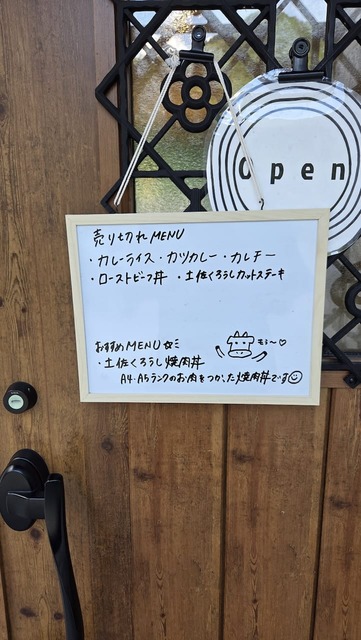 Open
売り切れMENU
・カレーライス・カツカレー・カレチー
・ローストビーフ丼 ・土佐くろうしカットステーキ
おすすめMENU☆ミ
もぅ〜♡
・土佐くろうし焼肉丼
A4・A5ランクのお肉をつかった焼肉丼です☺